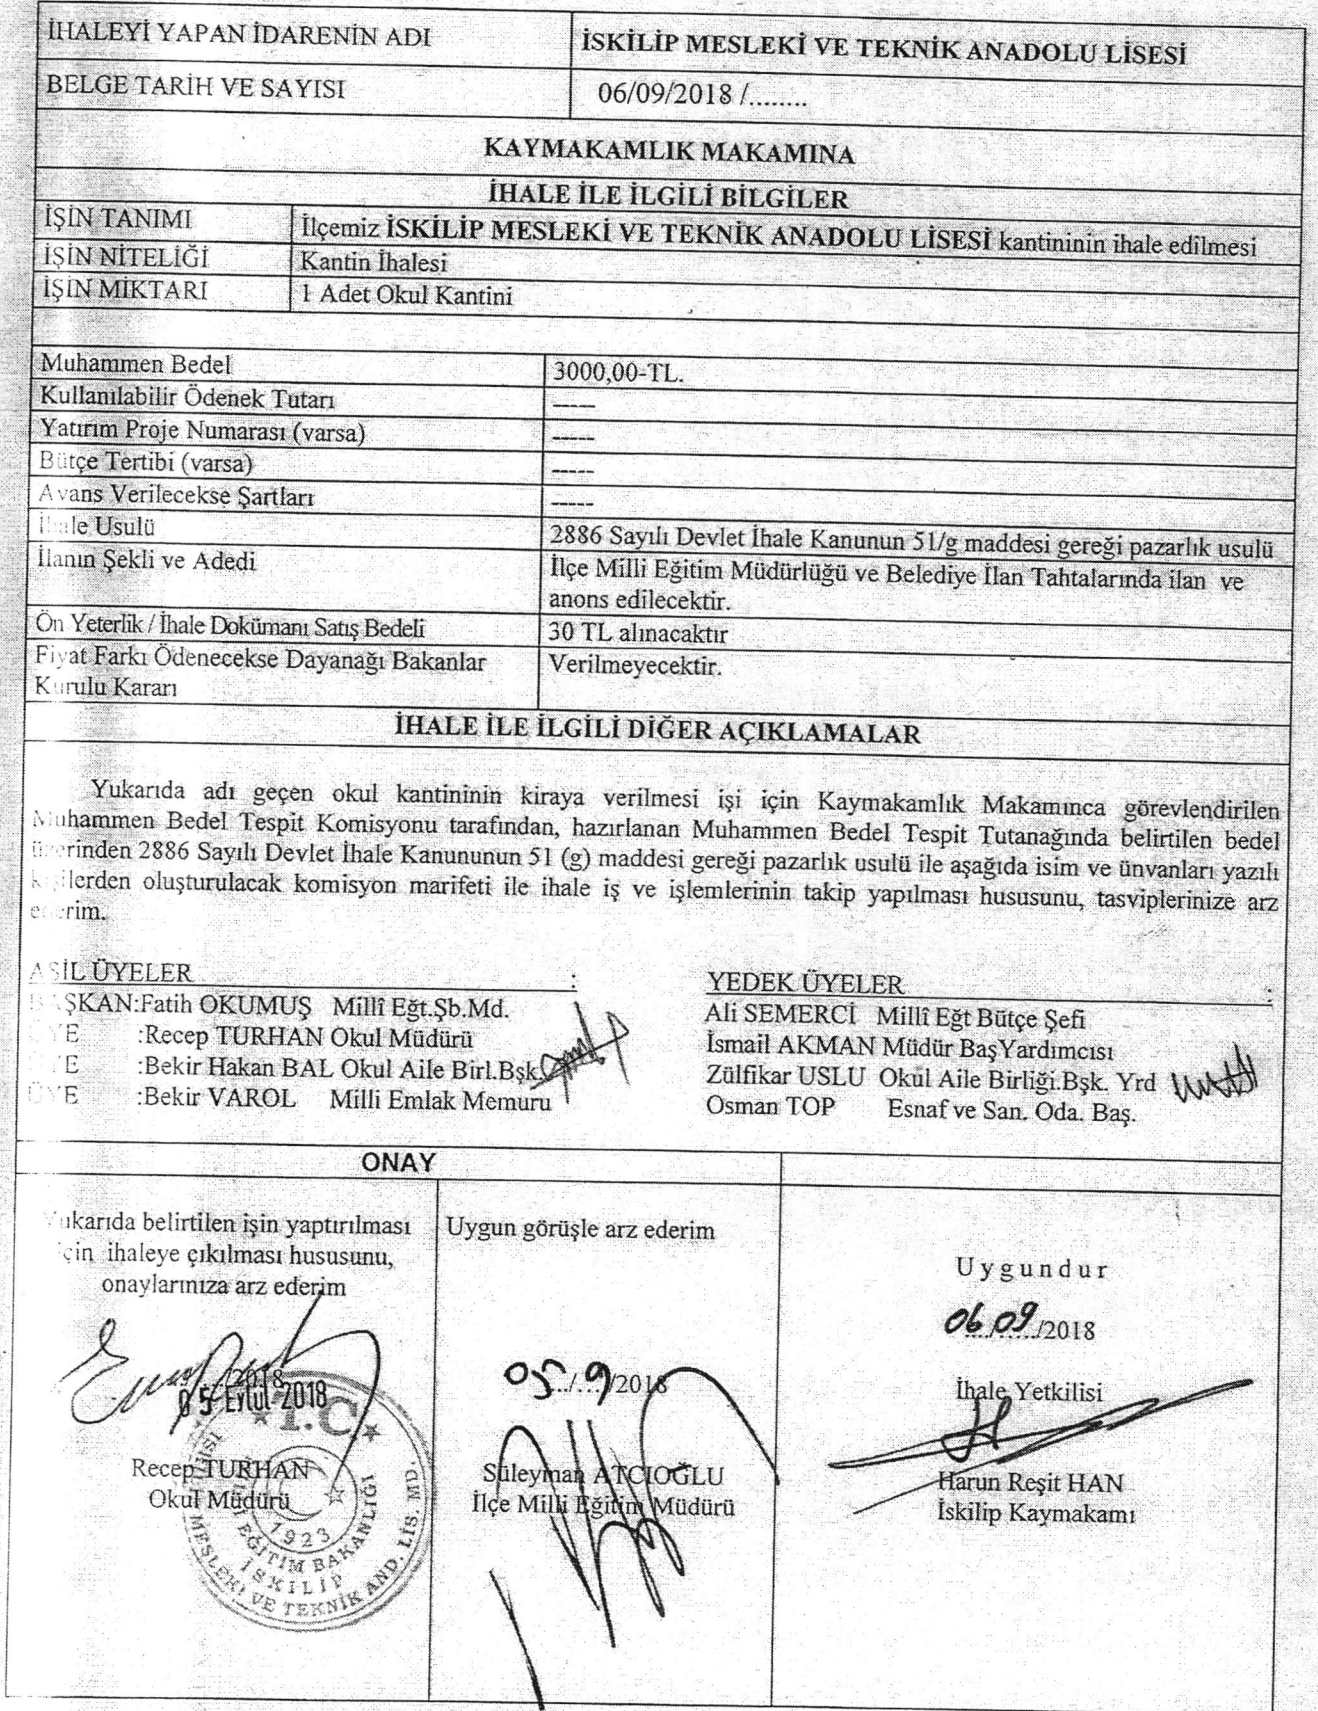 İHALEYİ YAPAN İDARENİN ADI İSKİLİP MESLEKİ VE TEKNİK ANADOLU LİSESİ
BELGE TARİH VE SAYISI 06/09/2018 /........
KAYMAKAMLIK MAKAMINA
İHALE İLE İLGİLİ BİLGİLER
İŞİN TANIMI İlçemiz İSKİLİP MESLEKİ VE TEKNİK ANADOLU LİSESİ kantininin ihale edilmesi
İŞİN NİTELİĞİ Kantin İhalesi
İŞİN MİKTARI 1 Adet Okul Kantini
Muhammen Bedel 3000,00-TL.
Kullanılabilir Ödenek Tutarı -----
Yatırım Proje Numarası (varsa) -----
Bütçe Tertibi (varsa) -----
Avans Verilecekse Şartları -----
İhale Usulü 2886 Sayılı Devlet İhale Kanunun 51/g maddesi gereği pazarlık usulü
İlanın Şekli ve Adedi İlçe Milli Eğitim Müdürlüğü ve Belediye İlan Tahtalarında ilan ve
anons edilecektir.
Ön Yeterlik / İhale Dokümanı Satış Bedeli 30 TL alınacaktır
Fiyat Farkı Ödenecekse Dayanağı Bakanlar Verilmeyecektir.
Kurulu Kararı
İHALE İLE İLGİLİ DİĞER AÇIKLAMALAR
Yukarıda adı geçen okul kantininin kiraya verilmesi işi için Kaymakamlık Makamınca görevlendirilen
Muhammen Bedel Tespit Komisyonu tarafından, hazırlanan Muhammen Bedel Tespit Tutanağında belirtilen bedel
üzerinden 2886 Sayılı Devlet İhale Kanununun 51 (g) maddesi gereği pazarlık usulü ile aşağıda isim ve ünvanları yazılı
kişilerden oluşturulacak komisyon marifeti ile ihale iş ve işlemlerinin takip yapılması hususunu, tasviplerinize arz
ederim.
ASİL ÜYELER :
BAŞKAN:Fatih OKUMUŞ Millî Eğt.Şb.Md.
ÜYE :Recep TURHAN Okul Müdürü
ÜYE :Bekir Hakan BAL Okul Aile Birl.Bşk
ÜYE :Bekir VAROL Milli Emlak Memuru
YEDEK ÜYELER :
Ali SEMERCİ Millî Eğt Bütçe Şefi
İsmail AKMAN Müdür BaşYardımcısı
Zülfikar USLU Okul Aile Birliği.Bşk. Yrd
Osman TOP Esnaf ve San. Oda. Baş.
ONAY
Yukarıda belirtilen işin yaptırılması
için ihaleye çıkılması hususunu,
onaylarınıza arz ederim
.../2018
05 Eylül 2018
Recep TURHAN
Okul Müdürü
T.C.
İSKİLİP MESLEKİ VE TEKNİK AND. LİS. MD.
MİLLİ EĞİTİM BAKANLIĞI
İSKİLİP
1923
Uygun görüşle arz ederim
05../..9/2018
Süleyman ATCIOĞLU
İlçe Milli Eğitim Müdürü
Uygundur
06./.09./2018
İhale Yetkilisi
Harun Reşit HAN
İskilip Kaymakamı